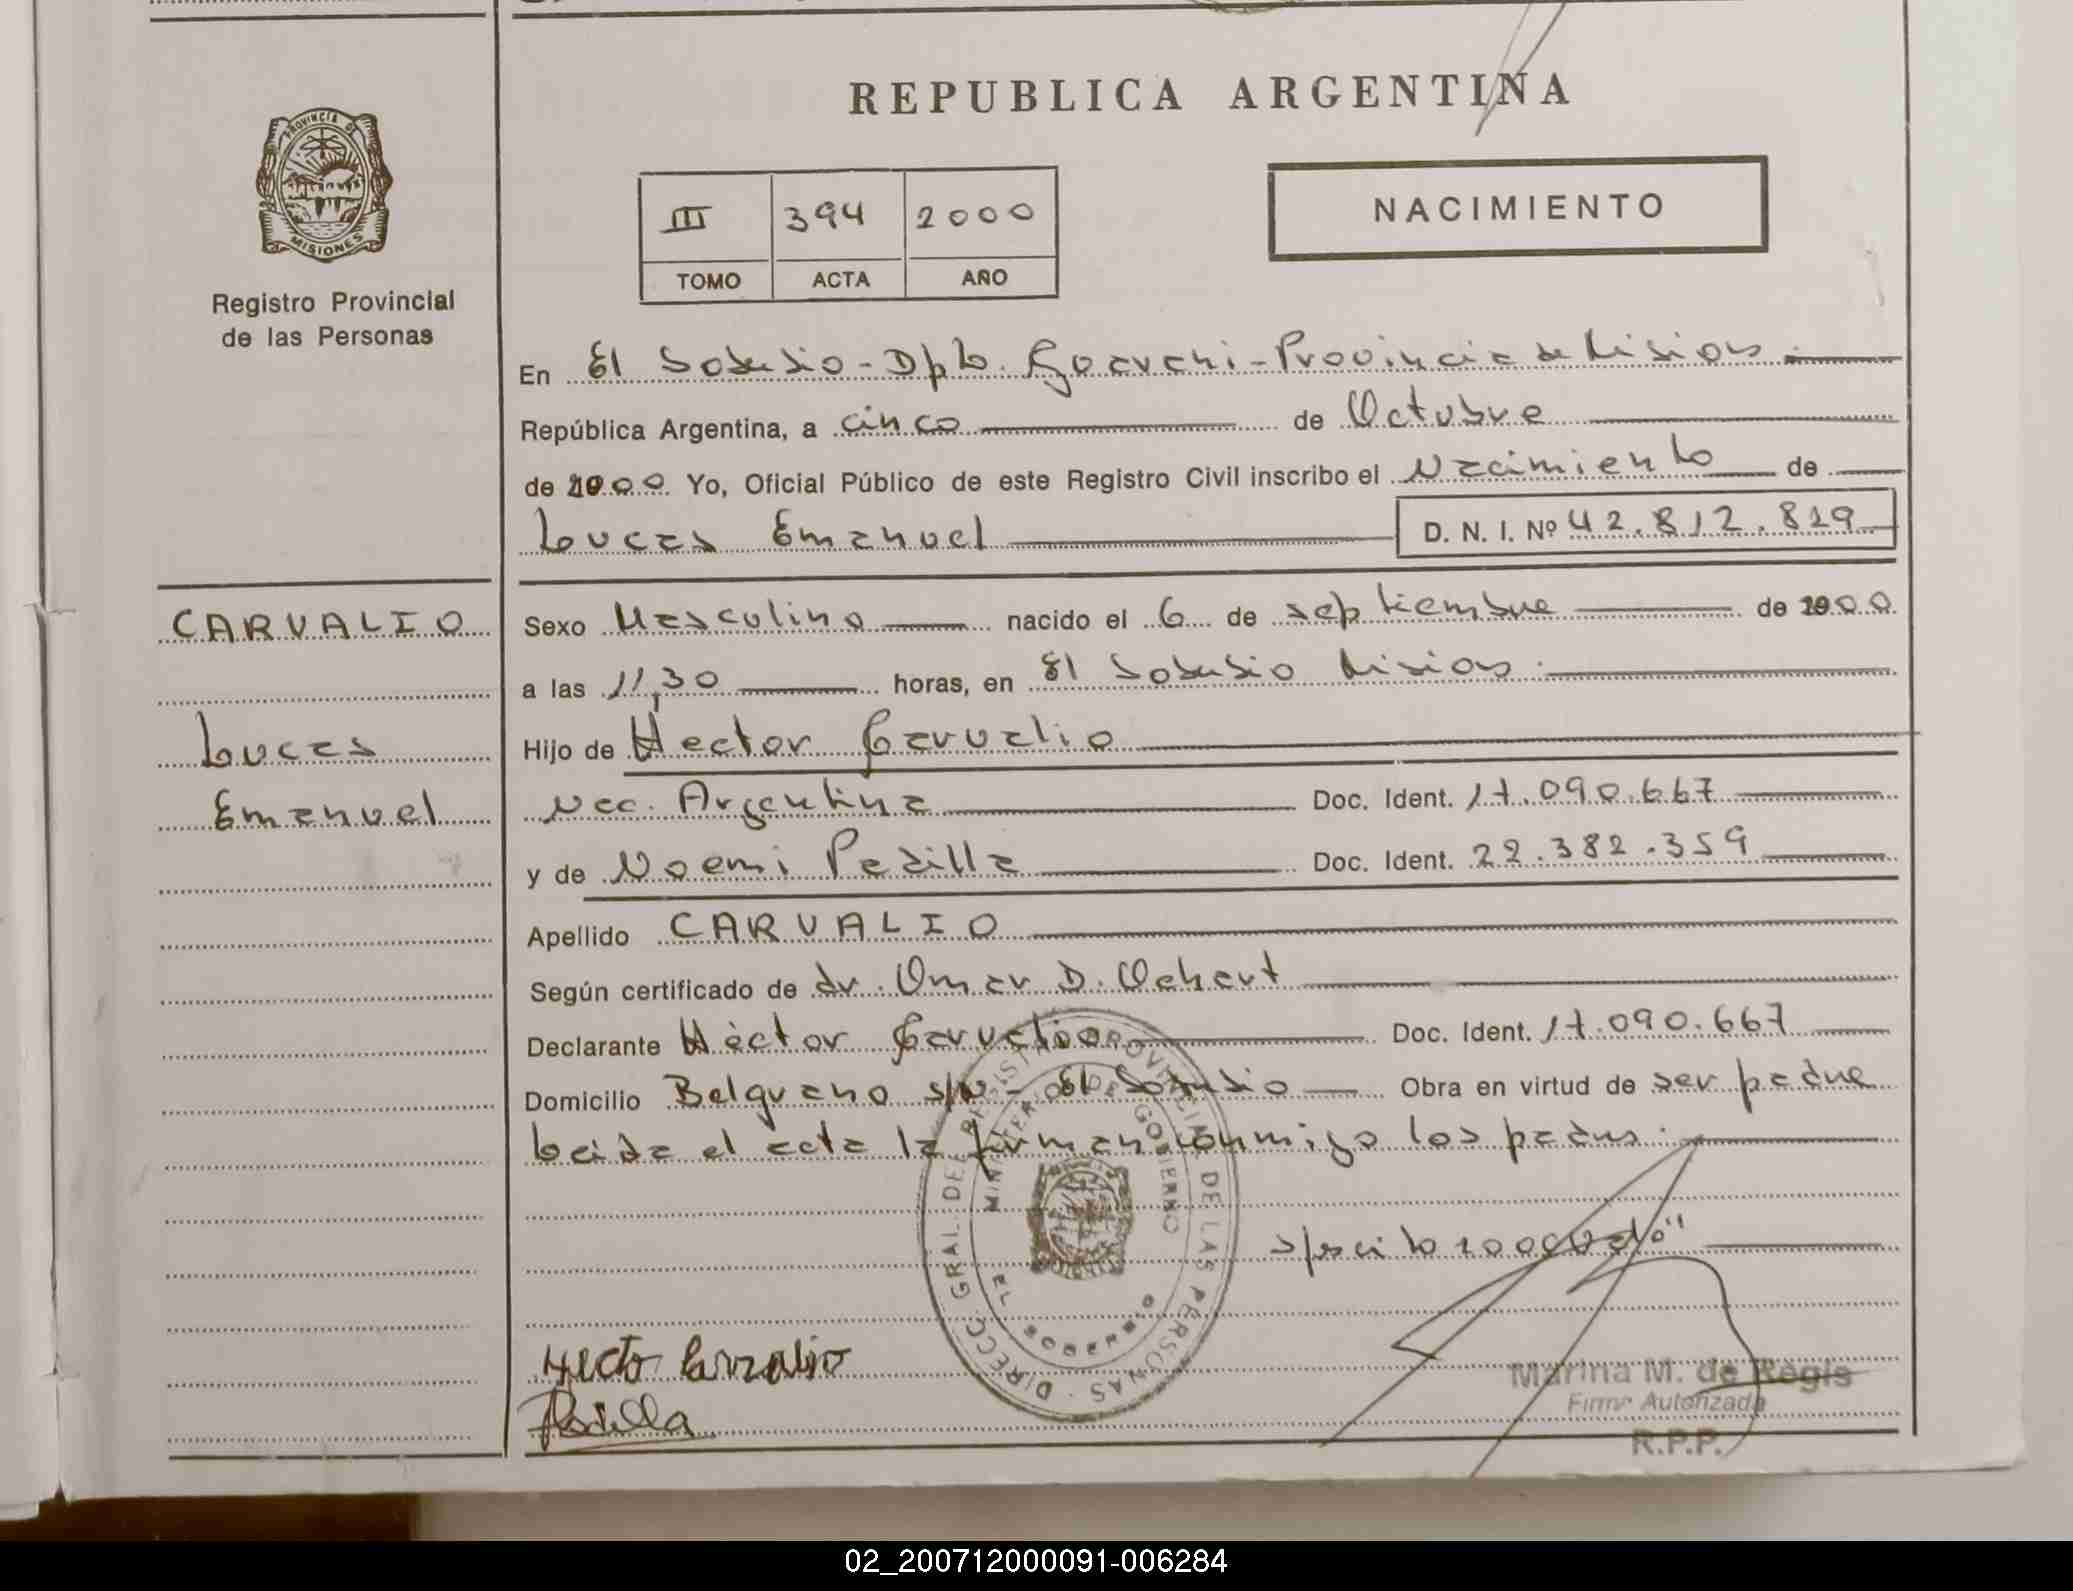 REPUBLICA ARGENTINA
PROVINCIA DE
MISIONES
Registro Provincial
de las Personas
III 394 2000
TOMO ACTA AÑO
NACIMIENTO
En El Soberbio - Dpto. Guarani - Provincia de Misiones.
República Argentina, a cinco de Octubre
de 2000 Yo, Oficial Público de este Registro Civil inscribo el Nacimiento de
Lucas Emanuel D. N. I. Nº 42.812.819
CARVALIO
Lucas
Emanuel
Sexo Masculino nacido el 6 de septiembre de 2000
a las 11,30 horas, en El Soberbio Misiones.
Hijo de Hector Carvalio
Nac. Argentina Doc. Ident. 17.090.667
y de Noemi Padilla Doc. Ident. 22.382.359
Apellido CARVALIO
Según certificado de dr. Omar D.
Declarante Héctor Carvalio Doc. Ident. 17.090.667
Domicilio Belgrano s/n - El Soberbio Obra en virtud de ser padre
Leida el acta la firman conmigo los padres.
DIRECC. GRAL. DEL REGISTRO PROVINCIAL DE LAS PERSONAS
MINISTERIO DE GOBIERNO
EL SOBERBIO
Hector Carvalio
Padilla
Marina M. de Regis
Firma Autorizada
R.P.P.
02_200712000091-006284